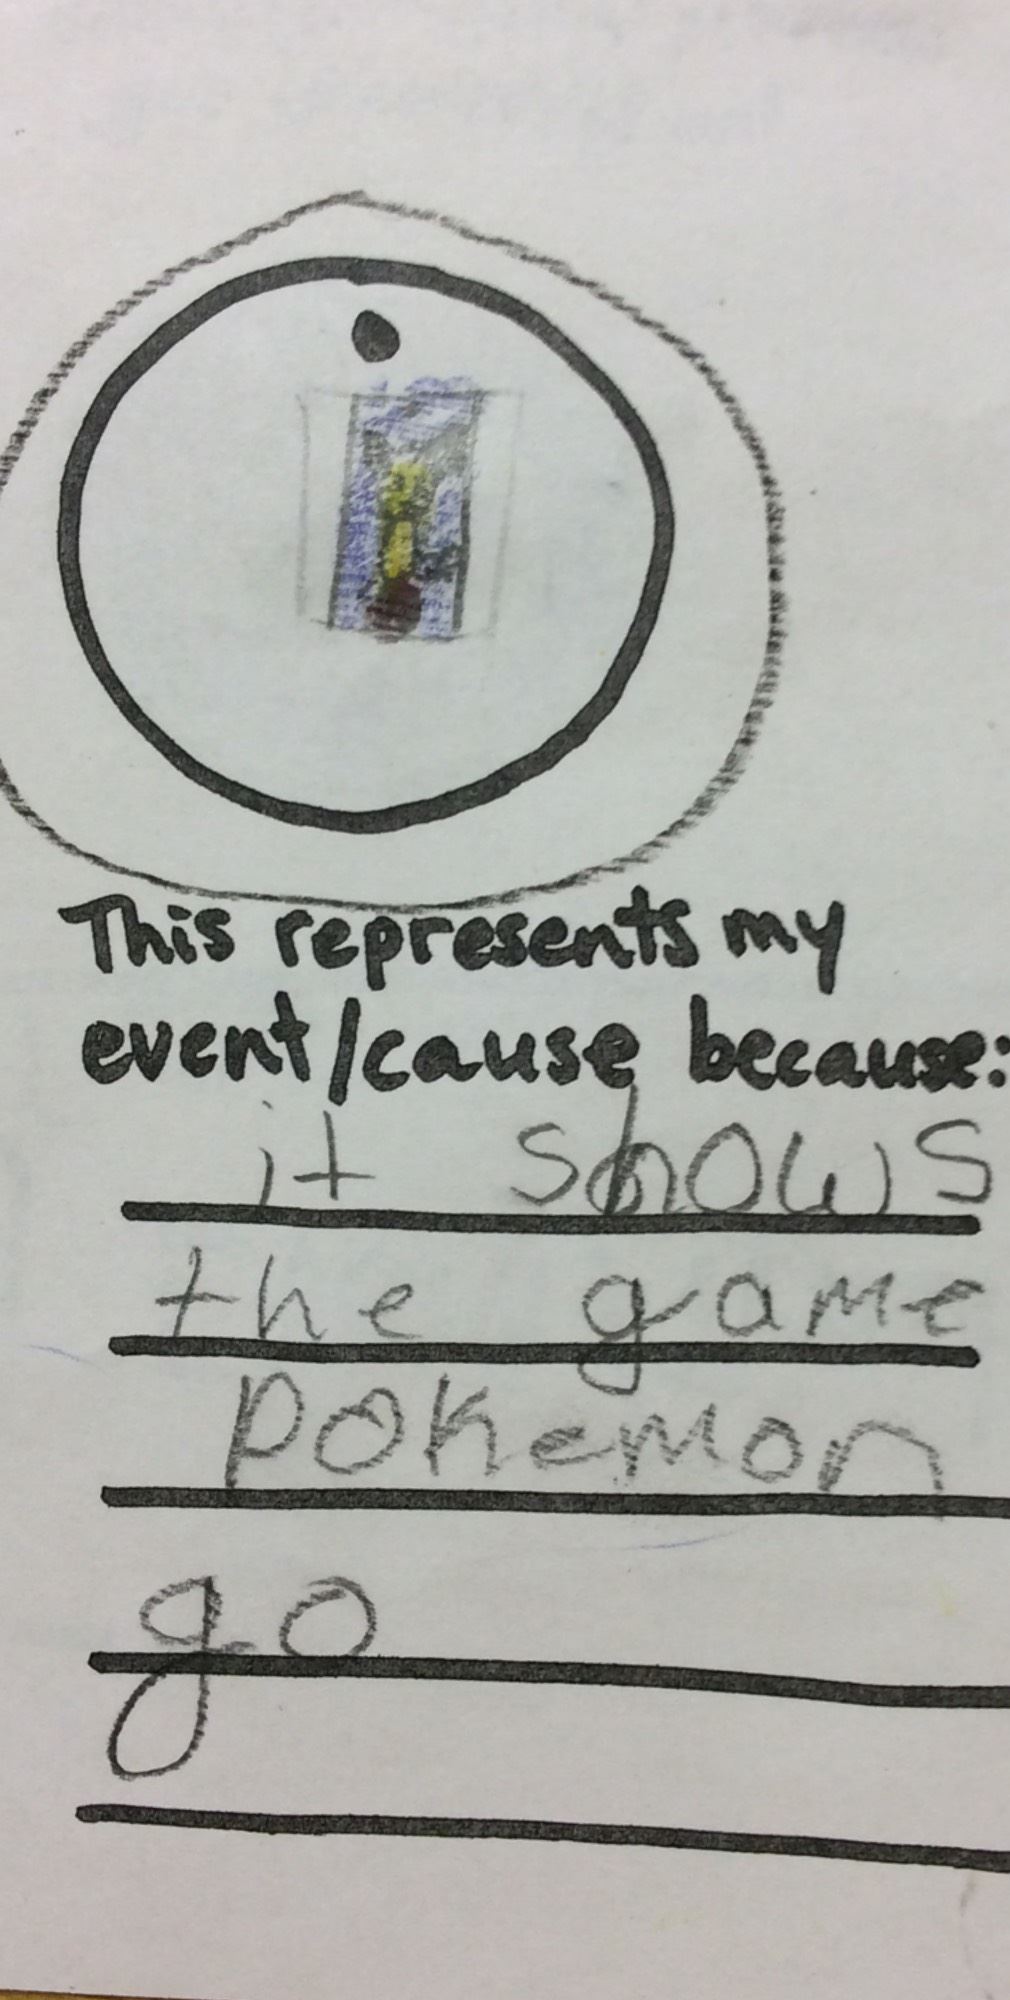 This represents my
event/cause because:
it shows
the game
pokemon
go